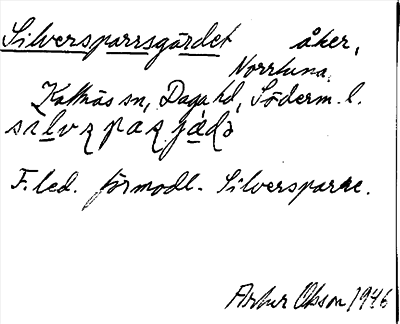 Silversparrsgärdet åker,
Norrtuna,
Kattnäs sn, Daga hd, Söderm. l.
F. led. förmodl. Silversparre.
Artur Olsson 1946